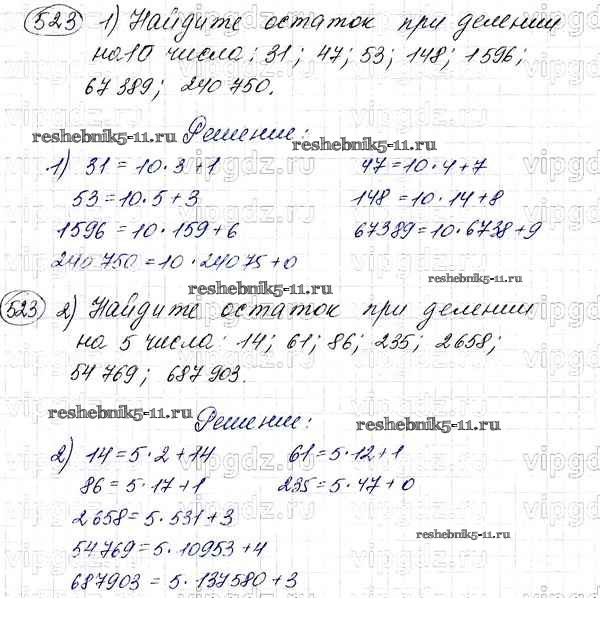 523 1) Найдите остаток при делении
на 10 числа: 31; 47; 53; 148; 1596;
67 389; 240 750.
reshebnik5-11.ru Решение: reshebnik5-11.ru
1) 31 = 10·3+1 47 = 10·4+7
53 = 10·5+3 148 = 10·14+8
1596 = 10·159+6 67389 = 10·6738+9
240 750 = 10·24075+0
reshebnik5-11.ru
reshebnik5-11.ru
523 2) Найдите остаток при делении
на 5 числа: 14; 61; 86; 235; 2658;
54 769; 687 903.
reshebnik5-11.ru Решение: reshebnik5-11.ru
2) 14 = 5·2+14 61 = 5·12+1
86 = 5·17+1 235 = 5·47+0
2658 = 5·531+3
reshebnik5-11.ru
54769 = 5·10953+4
687903 = 5·137580+3
vipgdz.ru